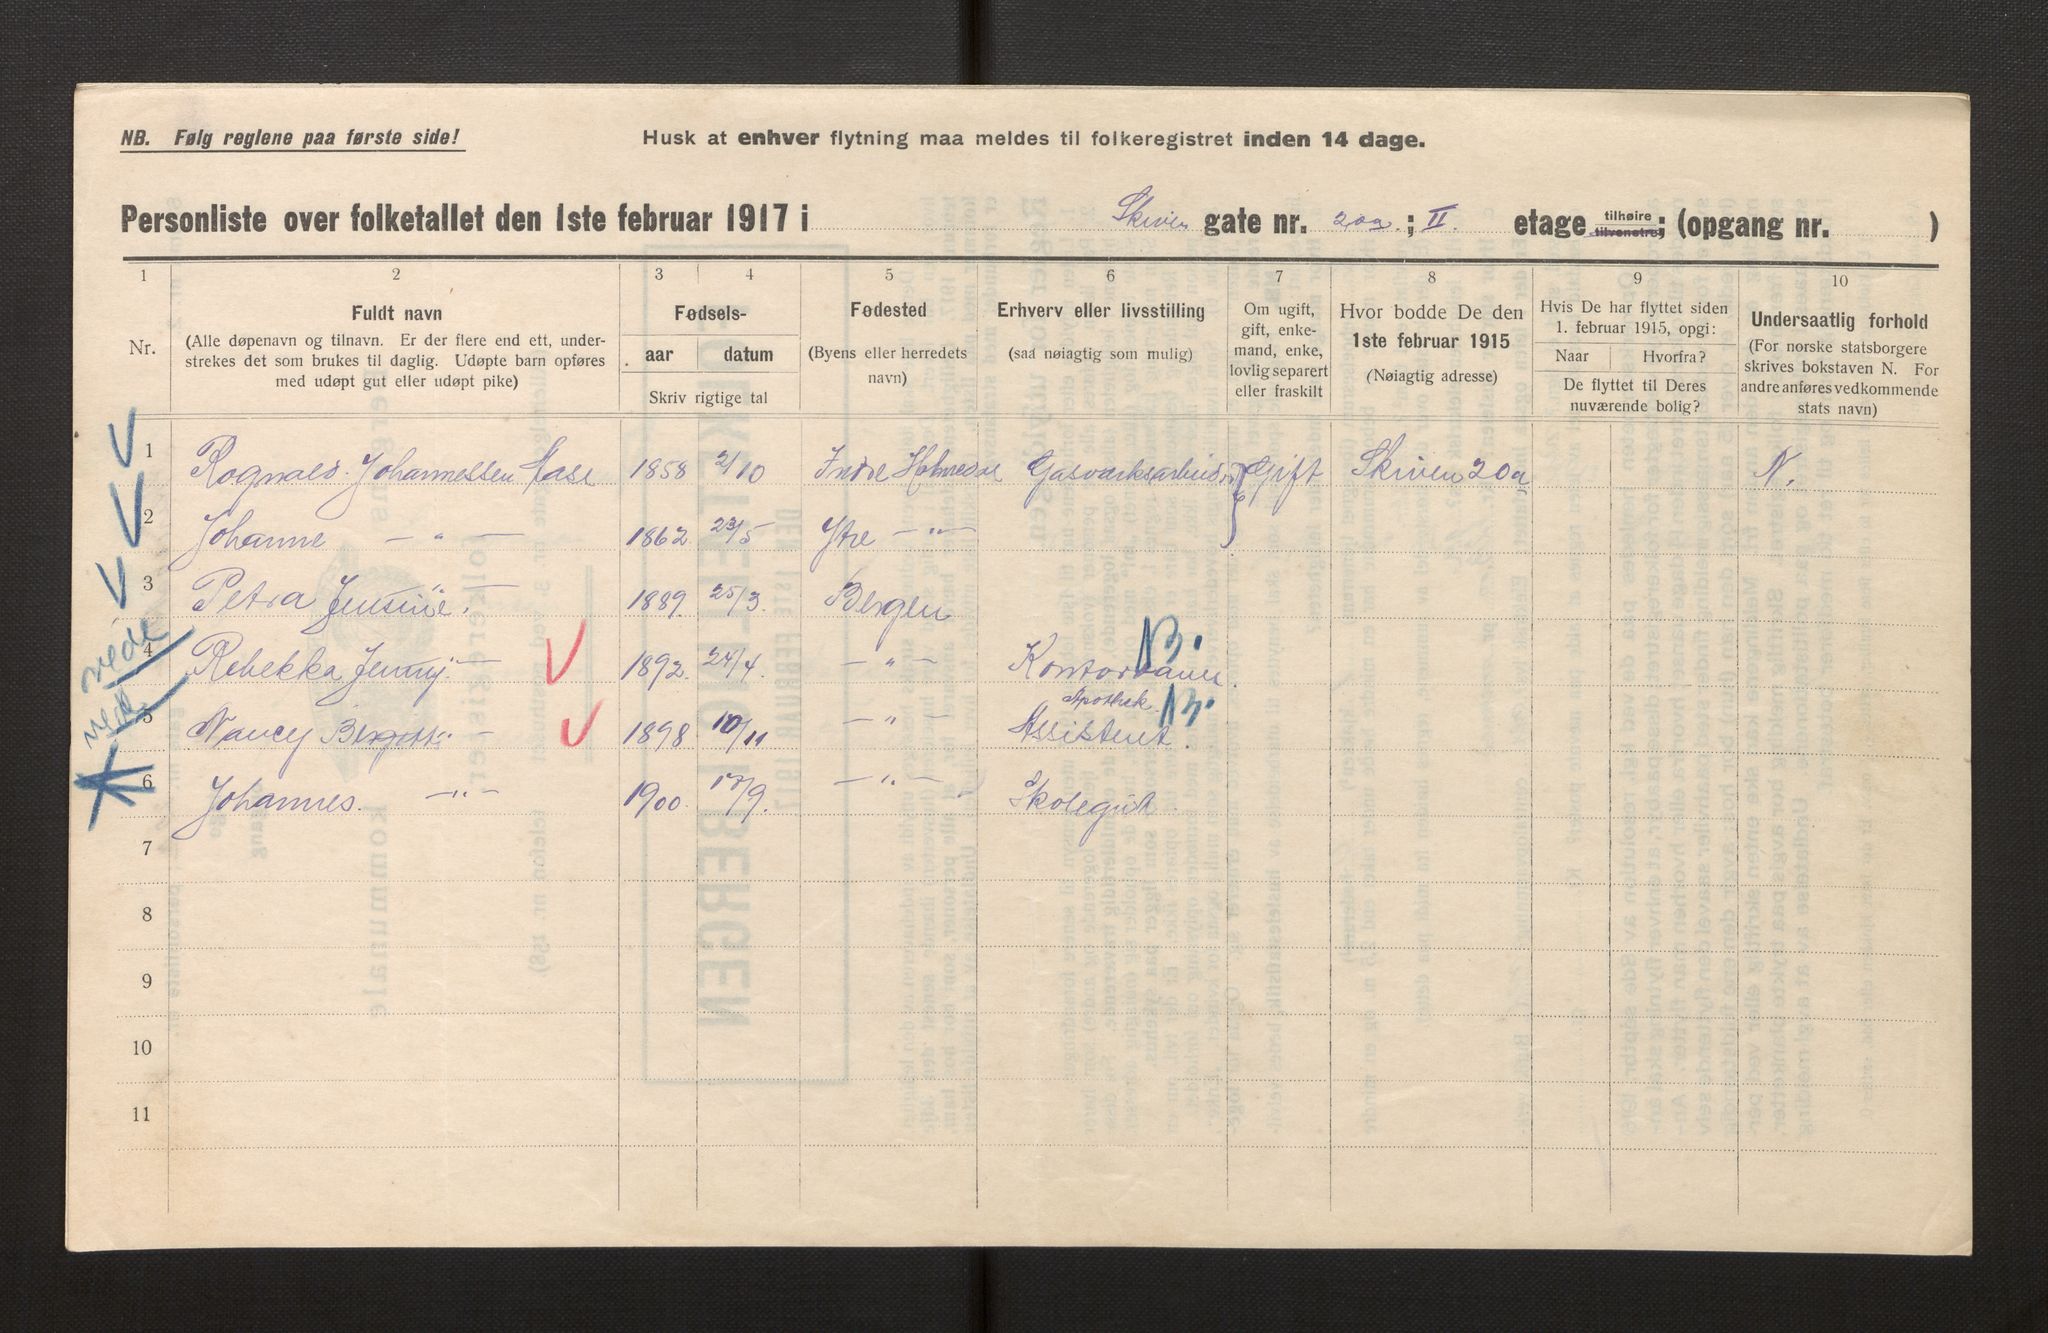 NB. Følg reglene paa første side!
Husk at enhver flytning maa meldes til folkeregistret inden 14 dage.
Personliste over folketallet den 1ste februar 1917 i Skiven gate nr. 20a.; II. etage tilhøire tilvenstre; (opgang nr. )
1 2 3 4 5 6 7 8 9 10
Nr.
Fuldt navn
(Alle døpenavn og tilnavn. Er der flere end ett, under-
strekes det som brukes til daglig. Udøpte barn opføres
med udøpt gut eller udøpt pike)
Fødsels-
aar datum
Skriv rigtige tal
Fødested
(Byens eller herredets
navn)
Erhverv eller livsstilling
(saa nøiagtig som mulig)
Om ugift,
gift, enke-
mand, enke,
lovlig separert
eller fraskilt
Hvor bodde De den
1ste februar 1915
(Nøiagtig adresse)
Hvis De har flyttet siden
1. februar 1915, opgi:
Naar Hvorfra?
De flyttet til Deres
nuværende bolig?
Undersaatlig forhold
(For norske statsborgere
skrives bokstaven N. For
andre anføres vedkommende
stats navn)
1 Rognald Johannessen Hase 1858 2/10 Indre Holmedal Gasværksarbeider Gift Skiven 20a N.
2 Johanne — " — 1862 23/5 Ytre — " —
3 Petra Jensine " — 1889 25/3 Bergen
nede
4 Rebekka Jenny — 1892 24/4 — " — Kontordame. B.
nede
Apothek
5 Nancy Bergitte — 1898 10/11 — " — Assistent. B.
6 Johannes. — " — 1900 17/9. — " — Skolegut.
7
8
9
10
11